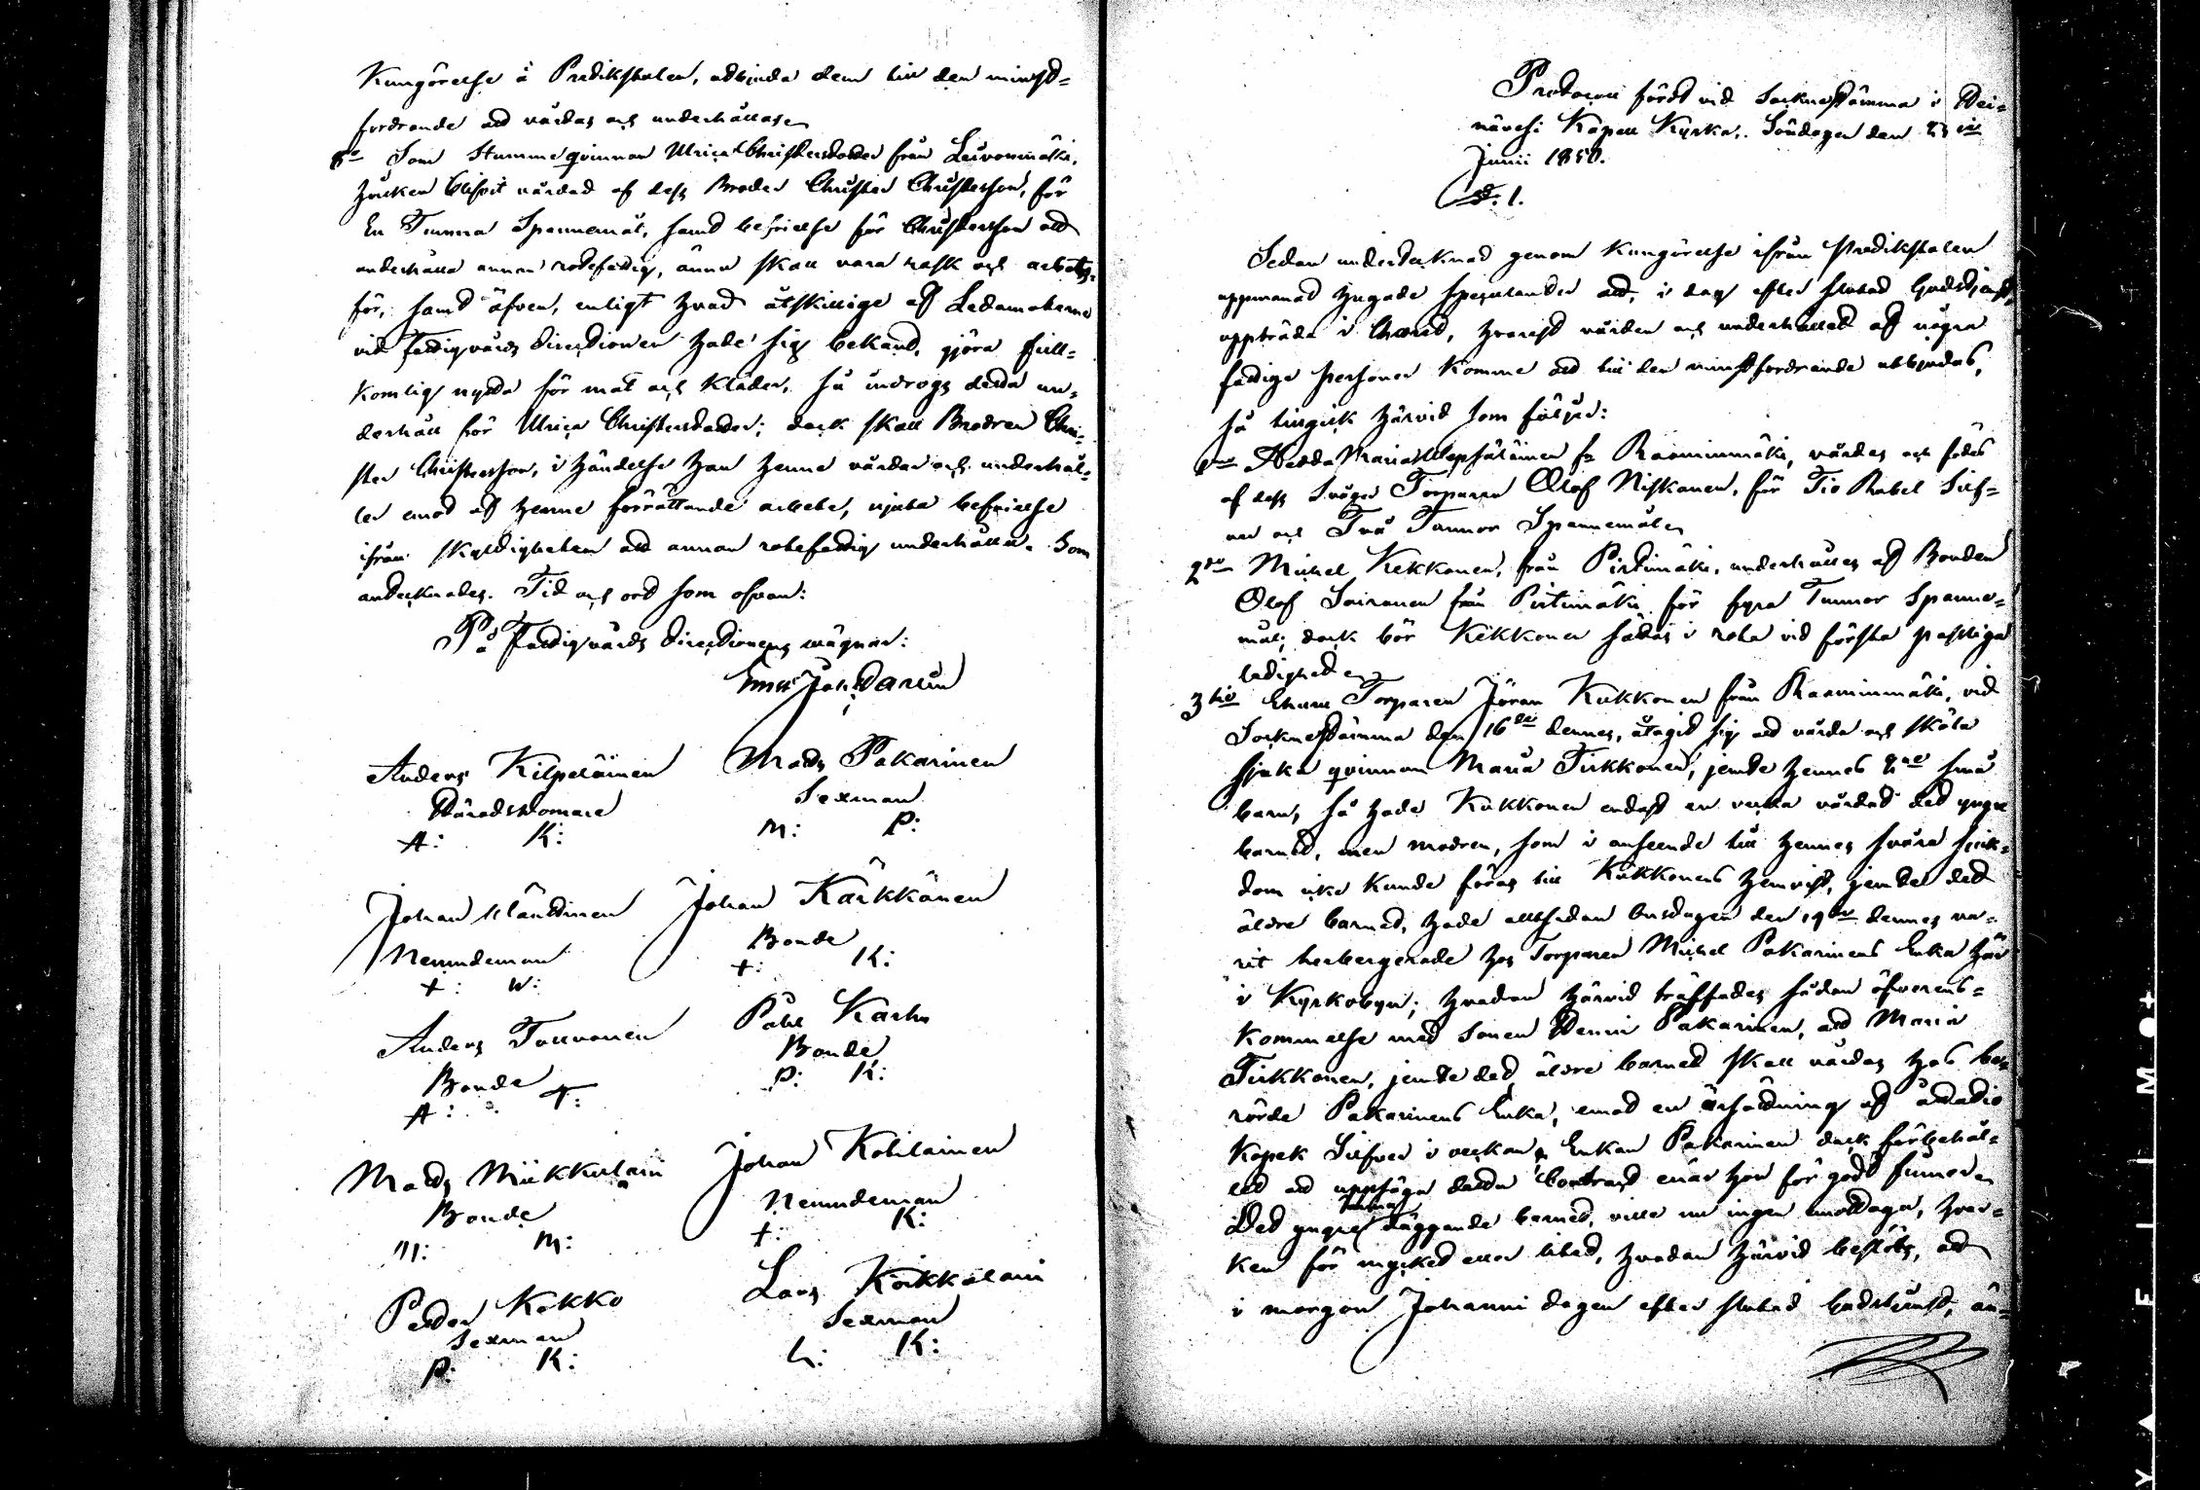 Kungörelse å Predikstolen, utbjuda dem till den minst-
fordrande att vårdas och underhållas.
8o Som Stumme qvinnan Ulrica Christersdotter från Leivonmäki,
hvilken blifvit vårdad af dess Broder Christer Christersson, för
En Tunna Spannemål, samt befrielse för Christersson att
underhålla annan rotefattig, ännu skall vara rask och arbets-
för, samt äfven, enligt hvad åtskillige af Ledamöterne
vid Fattigvårds Directionen hade sig bekant, göra full-
komlig nytta för mat och kläder, så indrogs detta un-
derhåll för Ulrica Christersdotter; dock skall Brodren Chri-
ster Christersson, i händelse han henne vårdar och underhål-
ler emot af henne förrättande arbete, njuta befrielse
ifrån skyldigheten att annan rotefattig underhålla. Som
antecknades. Tid och ort som ofvan:
På Fattigvårds Directionens vägnar:
Anders Kilpeläinen
Häradsdomare
A: K:
Mats Pakarinen
Sexman
M: P:
Johan
Nemndeman
+: W:
Johan Kärkkänen
Bonde
+: K:
Anders Touvonen
Bonde
A: T:
Påhl Karhu
Bonde
P: K:
Mats Miikkulain
Bonde
M: M:
Johan Kotilainen
Nemndeman
+: K:
Petter Kokko
Sexman
P: K:
Lars Koikkalain
Sexman
L: K:
Protocoll fördt vid Sockenstämma i Hei-
nävesi Kapell Kyrka, Söndagen den 23die
Junii 1850.
S. 1.
Sedan undertecknad genom Kungörelse ifrån Predikstolen
uppmanat hugade Speculanter att, i dag efter slutad Gudstjenst,
uppträda i Choret, hvarest vården och underhållet af några
fattiga personer komme att till den minstfordrande utbjudas,
så tillgick härvid som följer:
1mo Hedda Maria fr Raaminmäki, vårdas och födes
af dess Svåger Torparen Olof Niskanen, för Tio Rubel Silf-
ver och Två Tunnor Spannemål.
2do Michel Kekkonen, från Pirtimäki, underhålles af Bonden
Olof Soiranen från Pirtimäki för fyra Tunnor Spanne-
mål; dock bör Kekkonen sättas i rote vid första passliga
ledighet.
3tio Ehuru Torparen Jöran Kukkonen från Raaminmäki, vid
Sockenstämma den 16de dennes, åtagit sig att vårda och sköta
sjuka qvinnan Maria Tirkkonen, jemte hennes 2ne små
barn, så hade Kukkonen endast en vecka vårdat det yngre
barnet, men modren, som i anseende till hennes svåra sjuk-
dom icke kunde föras till Kukkonens hemvist, jemte det
äldre barnet, hade alltsedan Onsdagen den 19de dennes va-
rit herbergerade hos Torparen Michel Pakarinens Enka här
i Kyrkobyn; hvadan härvid träffades sådan öfverens-
kommelse med Sonen Henric Pakarinen, att Maria
Tirkkonen, jemte det äldre barnet skall vårdas hos be-
rörde Pakarinens Enka, emot en ersättning af åttatio
Kopek Silfver i veckan, Enkan Pakarinen dock förbehål-
let att uppsäga detta Contract enär hon för godt finner.
Det yngre däggande barnet, ville nu ingen emottaga, hvar-
ken för mycket eller litet, hvadan härvid beslöts, att
i morgon Johanni dagen efter slutad Gudstjenst, än-